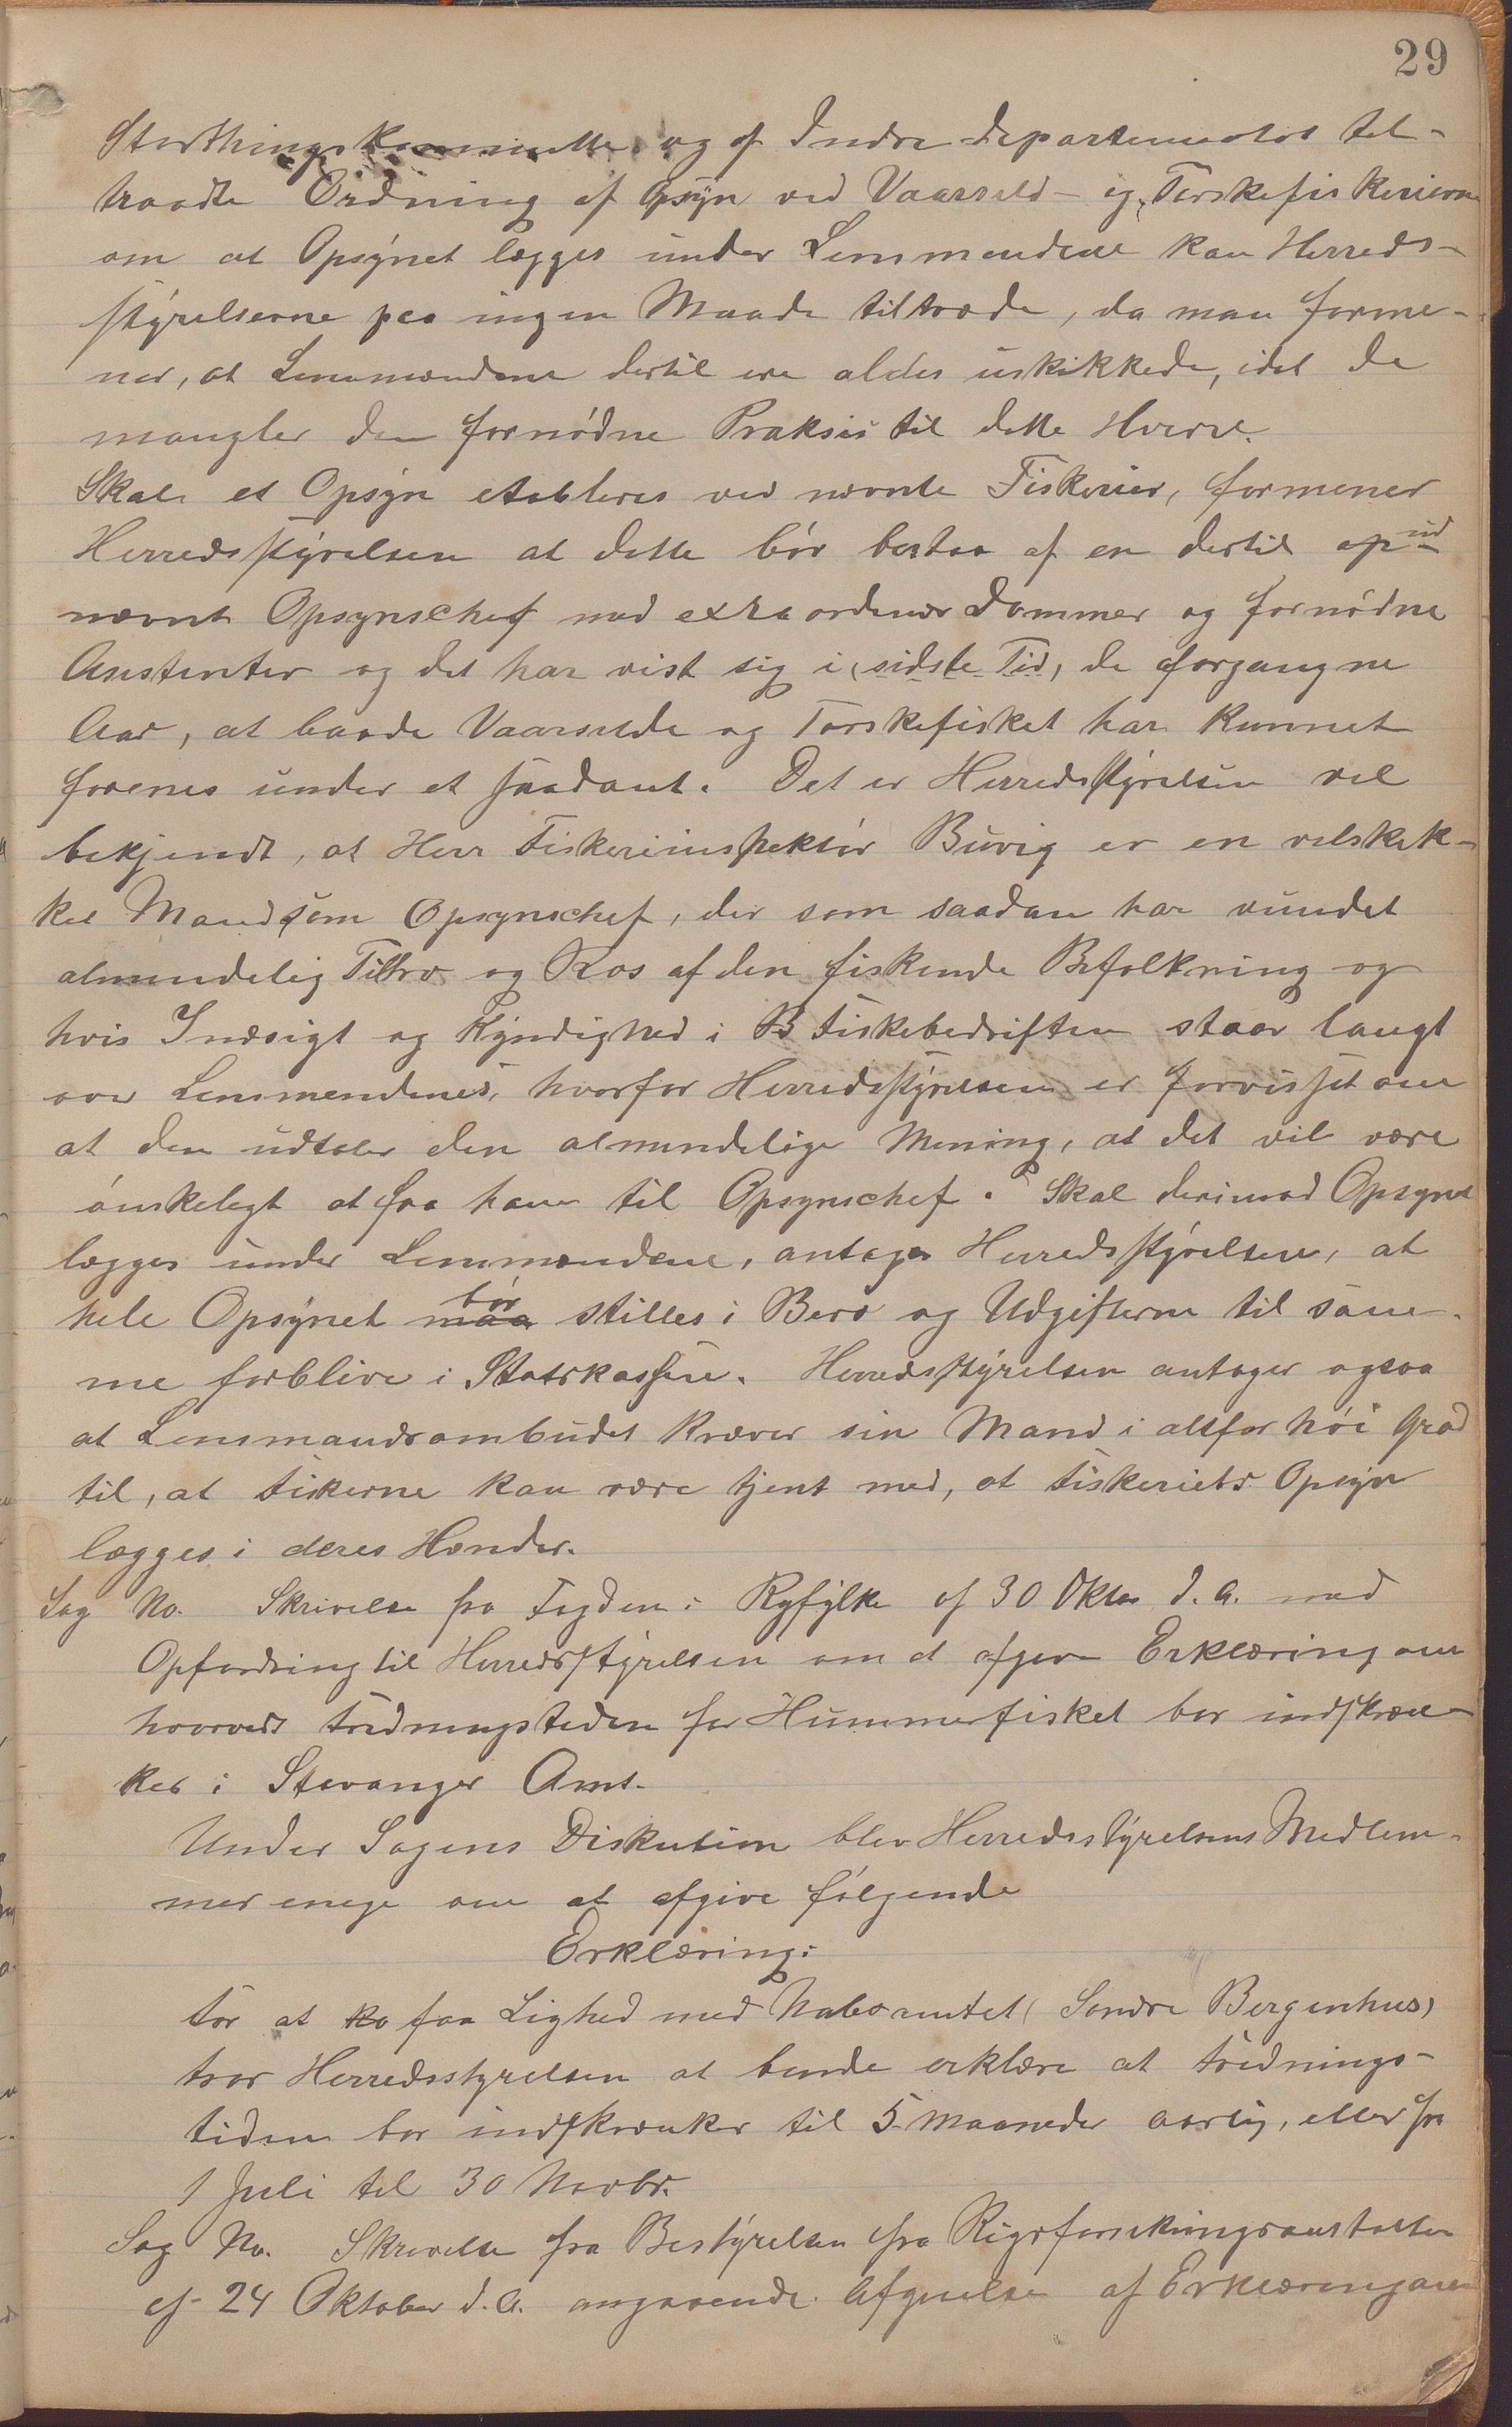 29
Storthingskommitte og af Indre departementet til-
traadte Ordning af Opsyn ved Vaarsild- og Torskefiskerierne
om at Opsynet lægges under Lensmændene kan Herreds-
styrelserne paa ingen Maade tiltræde, da man forme-
ner, at Lensmændene dertil ere aldes uskikkede, idet de
mangler den fornødne Praksis til dette Hverv.
Skal et Opsyn etableres ved nævnte Fiskerier, formener
Herredsstyrelsen at dette bør bestaa af en dertil op ud
nævnt Opsynschef med extraordinær Dommer og fornødne
Assistenter og det har vist sig i (sidste Tid) de forgangne
Aar, at baade Vaarsilde og Torskefisket har kunnet
forenes under et saadant. Det er Herredsstyrelsen vel
bekjendt, at Herr Fiskeriinspektør Buvig er en velskik-
ket Mand som Opsynschef, der som saadan har vundet
almindelig Tiltro og Ros af den fiskende Befolkning og
hvis Indsigt og Kyndighed i B Fiskebedriften staar langt
over Lensmendenes, hvorfor Herredsstyrelsen er forvisset om
at den udtaler den almindelige Mening, at det vil være
ønskeligt at faa ham til Opsynschef. Skal derimod Opsynet
lægges under Lensmændene, antager Herredsstyrelsen, at
bør
hele Opsynet maa stilles i Bero og Udgifterne til sam-
me forblive i Statskassen. Herredsstyrelsen antager ogsaa
at Lensmandsombudet kræver sin Mand i altfor høi Grad
til, at Fiskerne kan være tjent med, at Fiskeriets Opsyn
lægges i deres Hænder.
Sag No. Skrivelse fra Fogden i Ryfylke af 30 Oktor d.A. med
Opfordring til Herredsstyrelsen om at afgive Erklæring om
hvorvidt Fredningstiden for Hummerfisket bør indskræn-
kes i Stavanger Amt.
Under Sagens Diskution blev Herredsstyrelsens Medlem-
mer enige om at afgive følgende
Erklæring:
For at ko faa Lighed med Naboamtet (Søndre Bergenhus)
tror Herredsstyrelsen at burde erklære at Frednings-
tiden bør indskrænkes til 5 Maaneder aarlig, eller fra
1 Juli til 30 Novbr.
Sag No. Skrivelse fra Bestyrelsen fra Rigsforsikringsanstalten
af 24 Oktober d.A. angaaende Afgivelse af Erklæring om